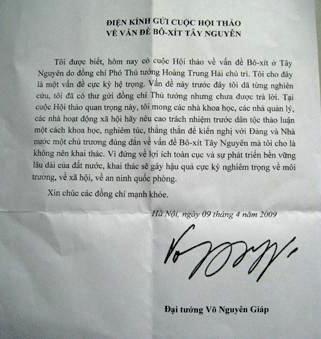 ĐIỆN KÍNH GỬI CUỘC HỘI THẢO
VỀ VẤN ĐỀ BÔ-XÍT TÂY NGUYÊN
Tôi được biết, hôm nay có cuộc Hội thảo về vấn đề Bô-xít ở Tây
Nguyên do đồng chí Phó Thủ tướng Hoàng Trung Hải chủ trì. Tôi cho đây
là một vấn đề cực kỳ hệ trọng. Vấn đề này trước đây tôi đã từng nghiên
cứu, tôi đã có thư gửi đồng chí Thủ tướng nhưng chưa được trả lời. Tại
cuộc Hội thảo quan trọng này, tôi mong các nhà khoa học, các nhà quản lý,
các nhà hoạt động xã hội hãy nêu cao trách nhiệm trước dân tộc thảo luận
một cách khoa học, nghiêm túc, thẳng thắn để kiến nghị với Đảng và Nhà
nước một chủ trương đúng đắn về vấn đề Bô-xít Tây Nguyên mà tôi cho là
không nên khai thác. Vì đứng về lợi ích toàn cục và sự phát triển bền vững
lâu dài của đất nước, khai thác sẽ gây hậu quả cực kỳ nghiêm trọng về môi
trường, về xã hội, về an ninh quốc phòng.
Xin chúc các đồng chí mạnh khỏe.
Hà Nội, ngày 09 tháng 4 năm 2009
Đại tướng Võ Nguyên Giáp